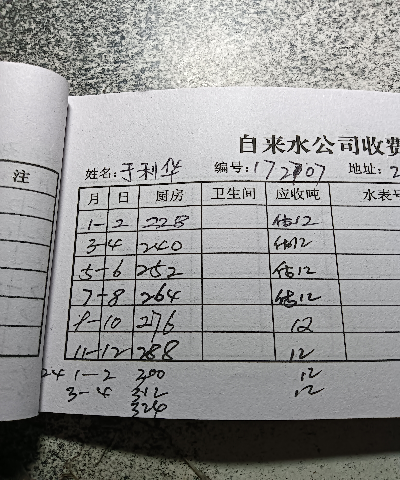 自来水公司收费
注
姓名:于利华 编号:172707 地址:2
月 日 厨房 卫生间 应收吨 水表号
1-2 228 估12
3-4 240 估12
5-6 252 估12
7-8 264 估12
9-10 276 12
11-12 288 12
24 1-2 300 12
3-4 312 12
324